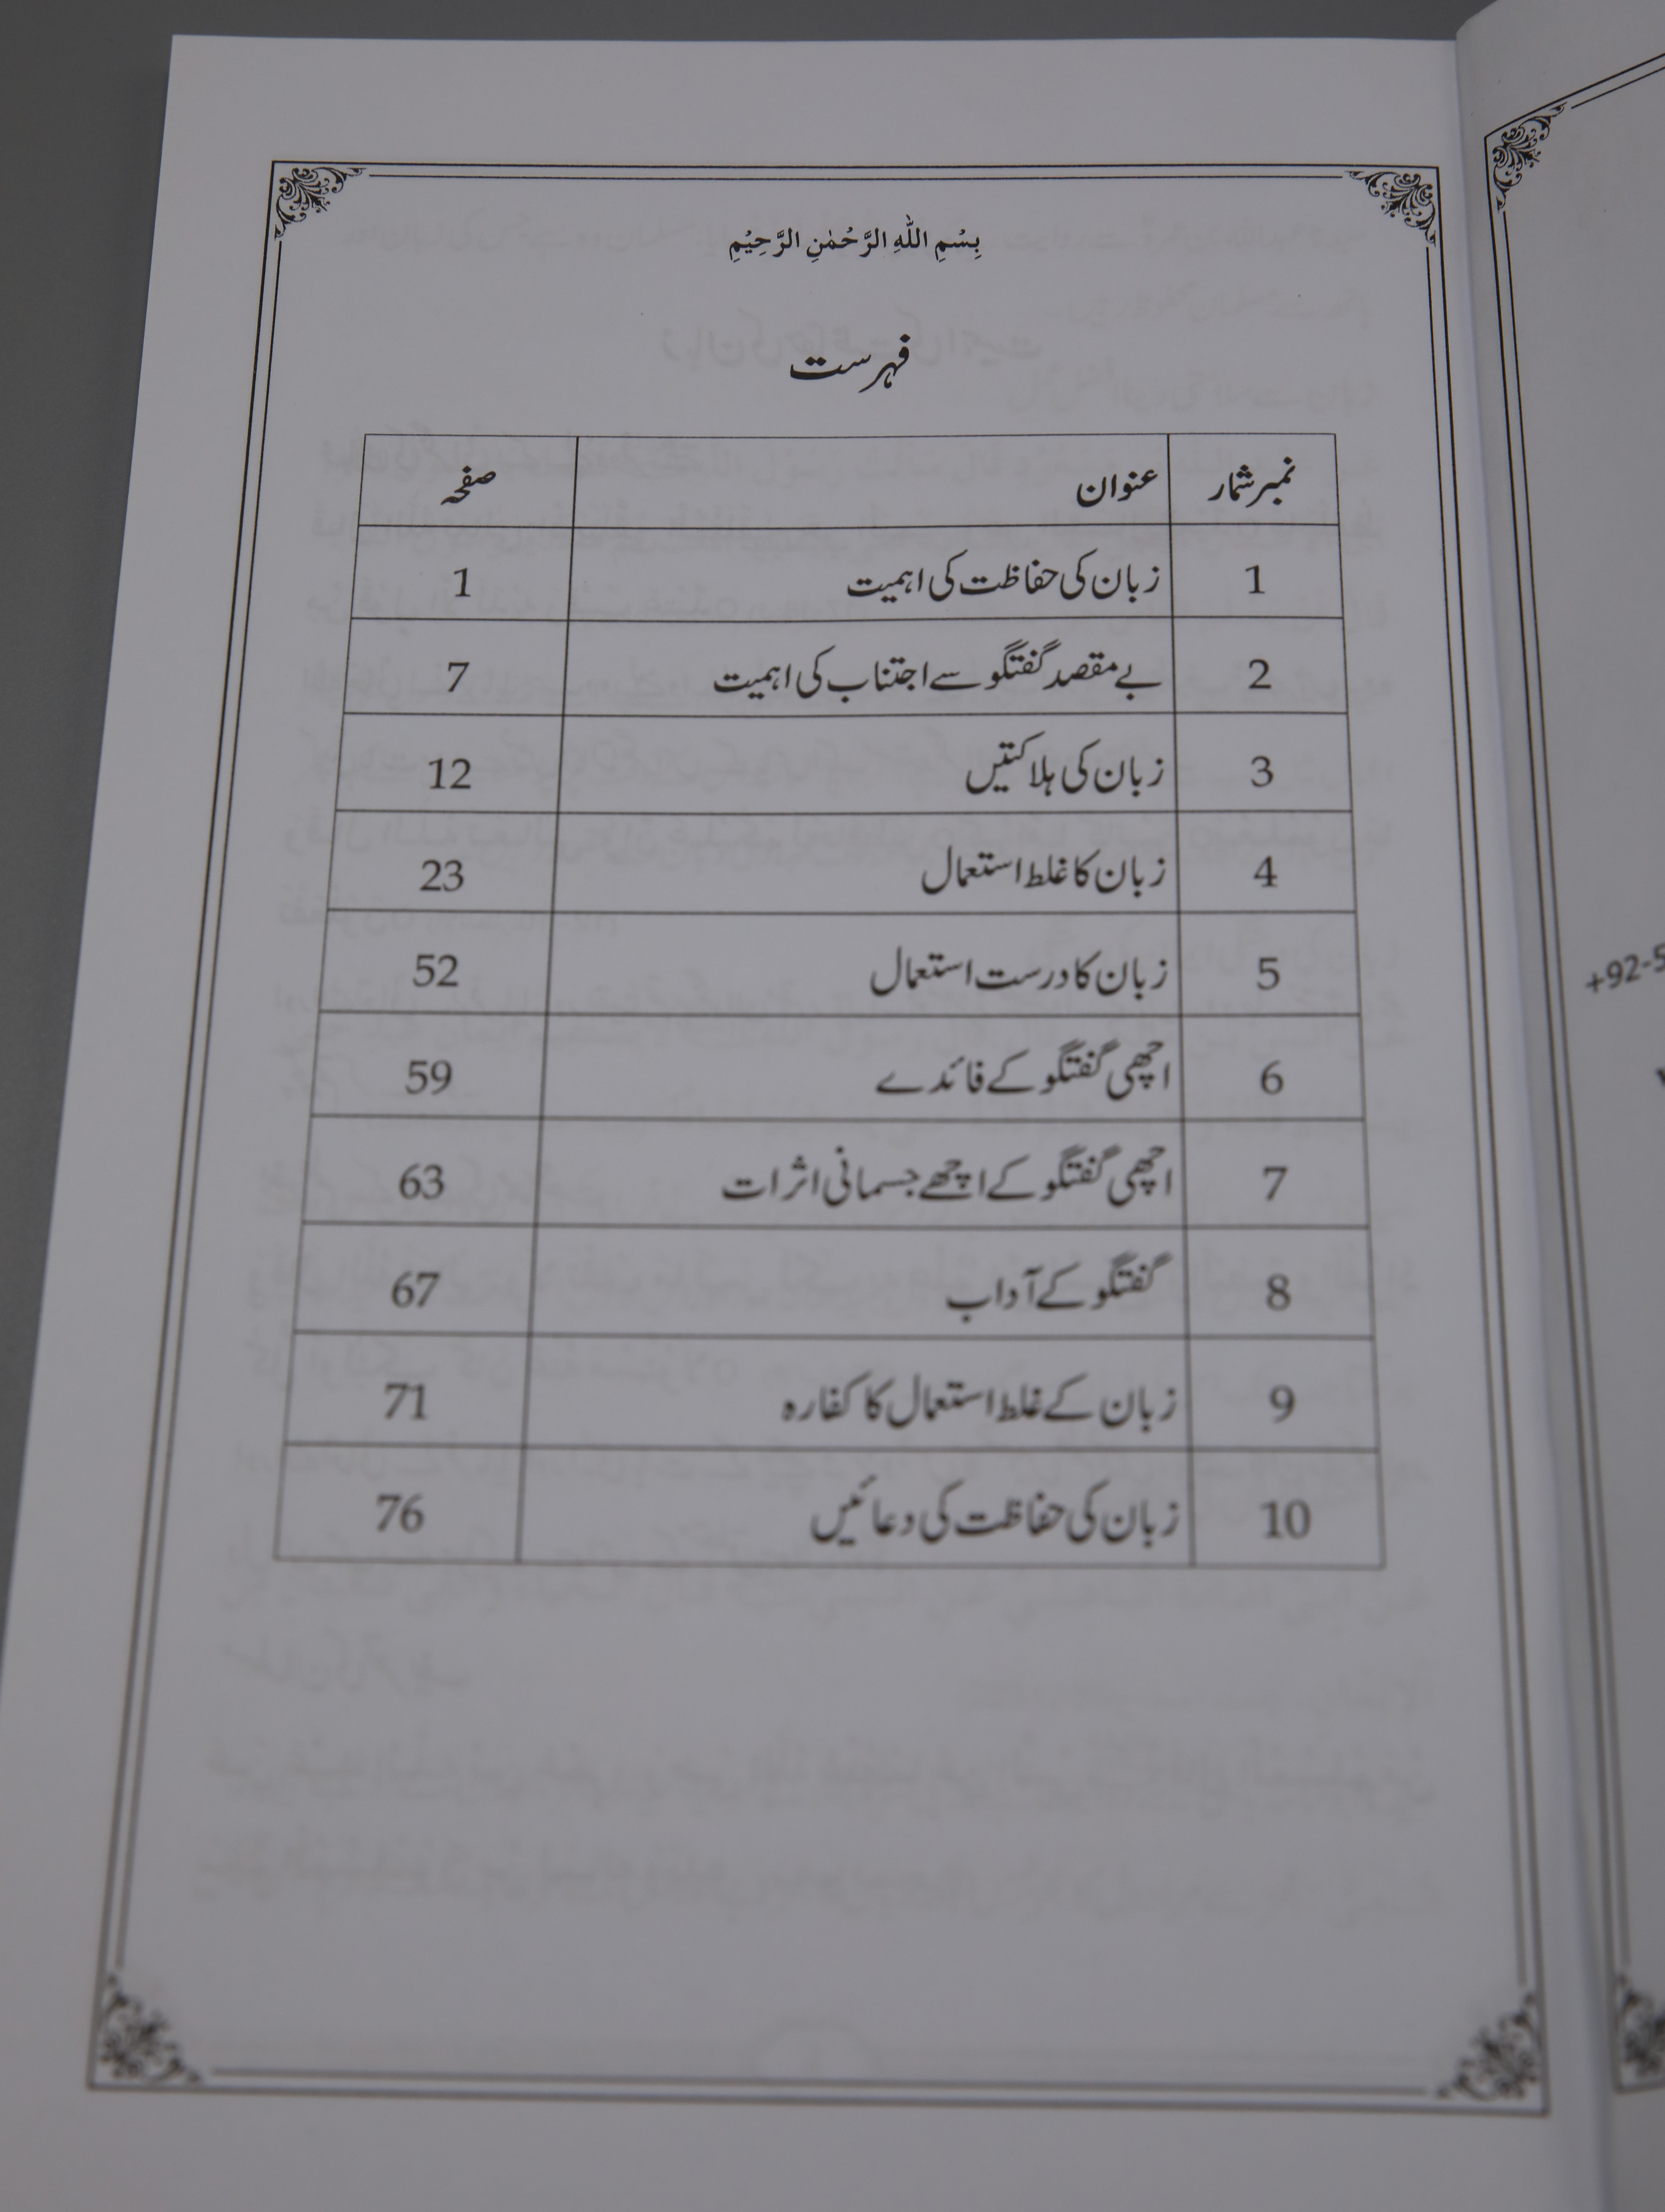 بِسْمِ اللّٰهِ الرَّحْمٰنِ الرَّحِيْمِ
فہرست
نمبر شمار عنوان صفحہ
1 زبان کی حفاظت کی اہمیت 1
2 بے مقصد گفتگو سے اجتناب کی اہمیت 7
3 زبان کی ہلاکتیں 12
4 زبان کا غلط استعمال 23
5 زبان کا درست استعمال 52
6 اچھی گفتگو کے فائدے 59
7 اچھی گفتگو کے اچھے جسمانی اثرات 63
8 گفتگو کے آداب 67
9 زبان کے غلط استعمال کا کفارہ 71
10 زبان کی حفاظت کی دعائیں 76
+92-5